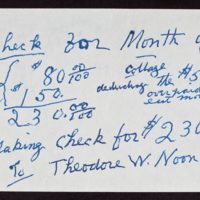 Check For Month
{ $ 80 00/100 Cottage
$ 150. 00/100 deducting the $5
230. 00/100 overpaid
last mon
Making Check for $ 230
To Theodore W. Noon